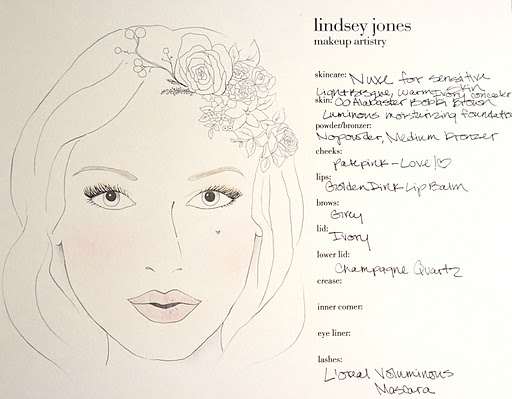 lindsey jones
makeup artistry
skincare: Nuxe for sensitive
skin
Light Bisque, Warm Ivory concealer
skin: 00 Alabaster Bobbi Brown
Luminous moisturizing foundatio
powder/bronzer:
No powder, Medium bronzer
cheeks:
pale pink - Love!
lips:
Golden Pink Lip Balm
brows:
Grey
lid:
Ivory
lower lid:
Champagne Quartz
crease:
inner corner:
eye liner:
lashes:
L'oreal Voluminous
Mascara